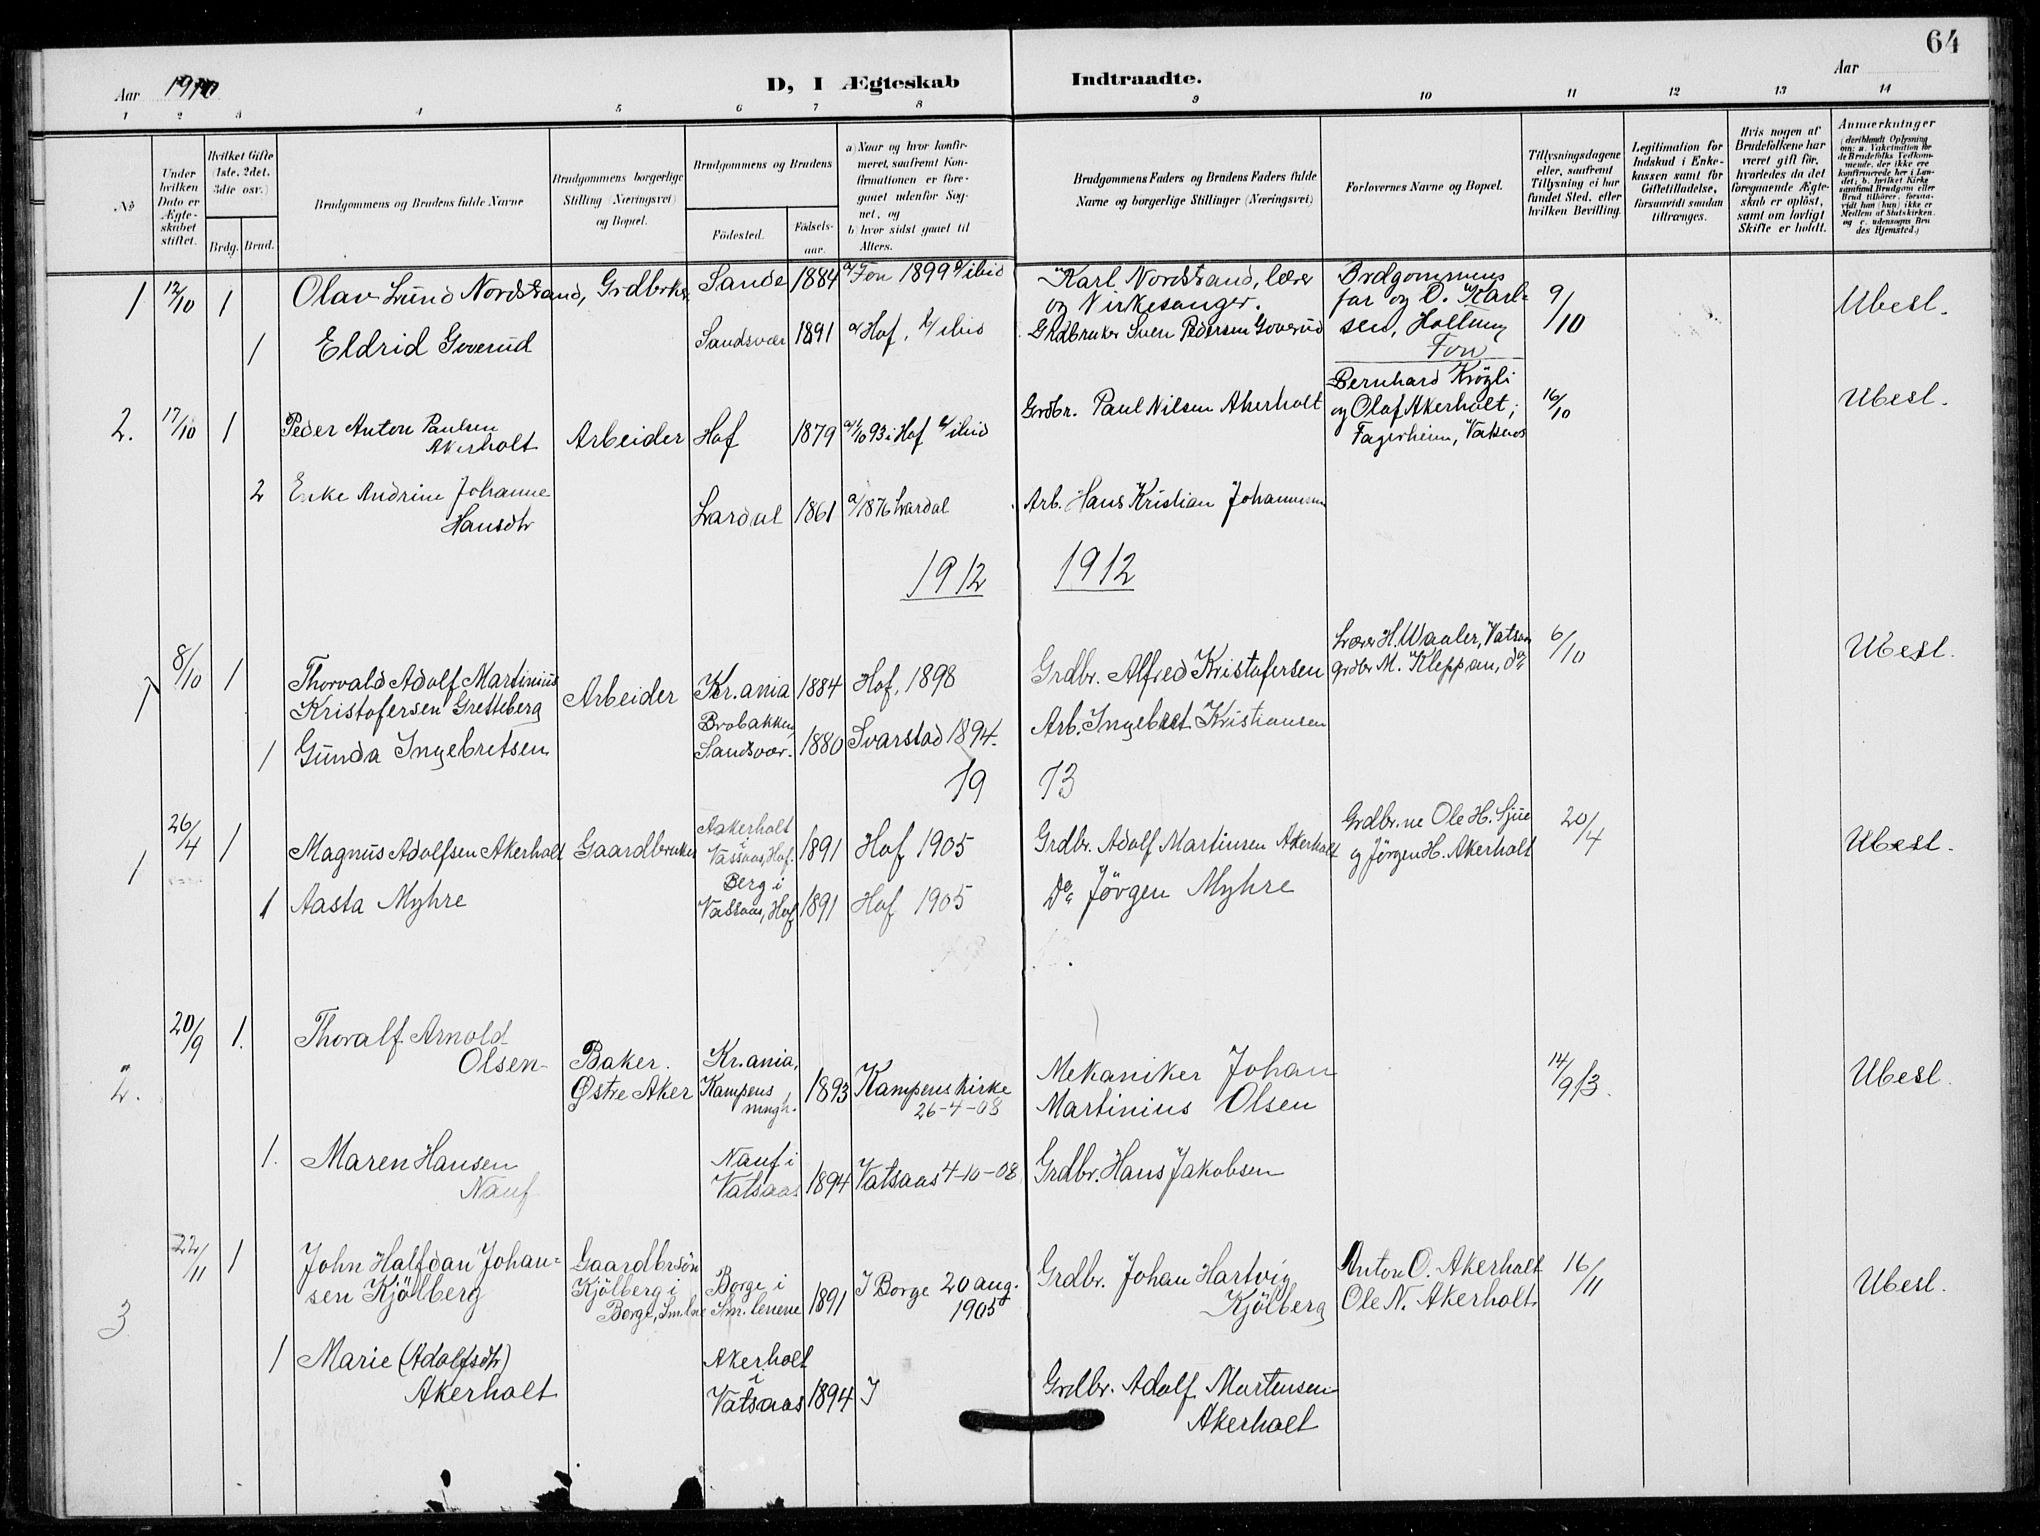 64
Aar 1910
D, I Ægteskab Indtraadte.
Aar
1 2 3 4 5 6 7 8 9 10 11 12 13 14
No
Under hvilken Dato er Ægteskabet stiftet.
Hvilket Gifte (1ste, 2det, 3die osv.)
Brdg. Brud.
Brudgommens og Brudens fulde Navne
Brudgommens borgerlige Stilling (Næringsvei) og Bopæl.
Brudgommens og Brudens
Födested.
Födsels-aar.
a) Naar og hvor konfirmeret, saafremt Konfirmationen er foregaaet udenfor Sognet, og
b) hvor sidst gaaet til Alters.
Brudgommens Faders og Brudens Faders fulde Navne og borgerlige Stillinger (Næringsvei)
Forlovernes Navne og Bopæl.
Tillysningsdagene eller, saafremt Tillysning ei har fundet Sted, efter hvilken Bevilling.
Legitimation for Indskud i Enkekassen samt for Giftetilladelse, forsaavidt saadan tiltrænges.
Hvis nogen af Brudefolkene har været gift för, hvorledes da det foregaaende Ægteskab er oplöst, samt om lovligt Skifte er holdt.
Anmerkninger
(deriblandt Oplysning om: a. Vakcination for de Brudefolks Vedkommende, der ikke ere konfirmerede her i Landet; b. hvilket Kirke samfund Brudgom eller Brud tilhörer, forsaavidt han (hun) ikke er Medlem af Statskirken, og c. udensogns Brudes Hjemsted.)
1 12/10 1 Olav Lund Nordstrand, Grdbrker Sande 1884 a/ Fon 1899 b/ ibid Karl Nordstrand, lærer og Kirkesanger. Brdgommens far og O. Karlsen, Hallum, Fon 9/10 Ubesl.
1 Eldrid Goverud Sandsvær 1891 a/ Hof, b/ ibid Grdbruker Sven Pedersen Goverud
2. 17/10 1 Peder Anton Paulsen Akerholt Arbeider Hof 1879 a/ 1/10 93 i Hof b/ ibid Grdbr. Paul Nilsen Akerholt Bernhard Krögli og Olaf Akerholt; Fagerheim, Vatsaas 16/10 Ubesl.
2 Enke Andrine Johanne Hansdtr Lardal 1861 a/ 1876 Lardal Arb. Hans Kristian Johannesen
1912 1912
1 8/10 1 Thorvald Adolf Martinius Kristofersen Gretteberg Arbeider Kr.ania 1884 Hof, 1898 Grdbr. Alfred Kristofersen Lærer H. Waaler, Vatsaas grdbr M. Kleppan, do 6/10 Ubesl.
1 Gunda Ingebretsen Brobakken, Sandsvær. 1880 Svarstad 1894. Arb. Ingebret Kristiansen
19 13
1 26/4 1 Magnus Adolfsen Akerholt Gaardbruker Aakerholt i Vassaas, Hof. 1891 Hof 1905 Grdbr. Adolf Martinsen Akerholt Grdbr.ne Ole H. Sjue og Jørgen H. Akerholt 20/4 Ubesl.
1 Aasta Myhre Berg i Vassaas, Hof 1891 Hof 1905 Do Jörgen Myhre
2. 20/9 1. Thoralf Arnold Olsen Baker. Østre Aker Kr.ania, Kampens mngh. 1893 Kampens kirke 26-4-08 Mekaniker Johan Martinius Olsen 14/9 13. Ubesl.
1. Maren Hansen Nauf Nauf i Vatsaas 1894 Vatsaas 4-10-08 Grdbr. Hans Jakobsen
3 22/11 1 John Halfdan Johansen Kjölberg Gaardbrsön Kjölberg i Borge, Smlne Borge i Smlenene 1891 I Borge 20 aug. 1905 Grdbr. Johan Hartvig Kjölberg Anton O. Akerholt Ole N. Akerholt. 16/11 Ubesl.
1 Marie (Adolfsdtr) Akerholt Akerholt i Vatsaas 1894 I Grdbr. Adolf Martensen Akerholt